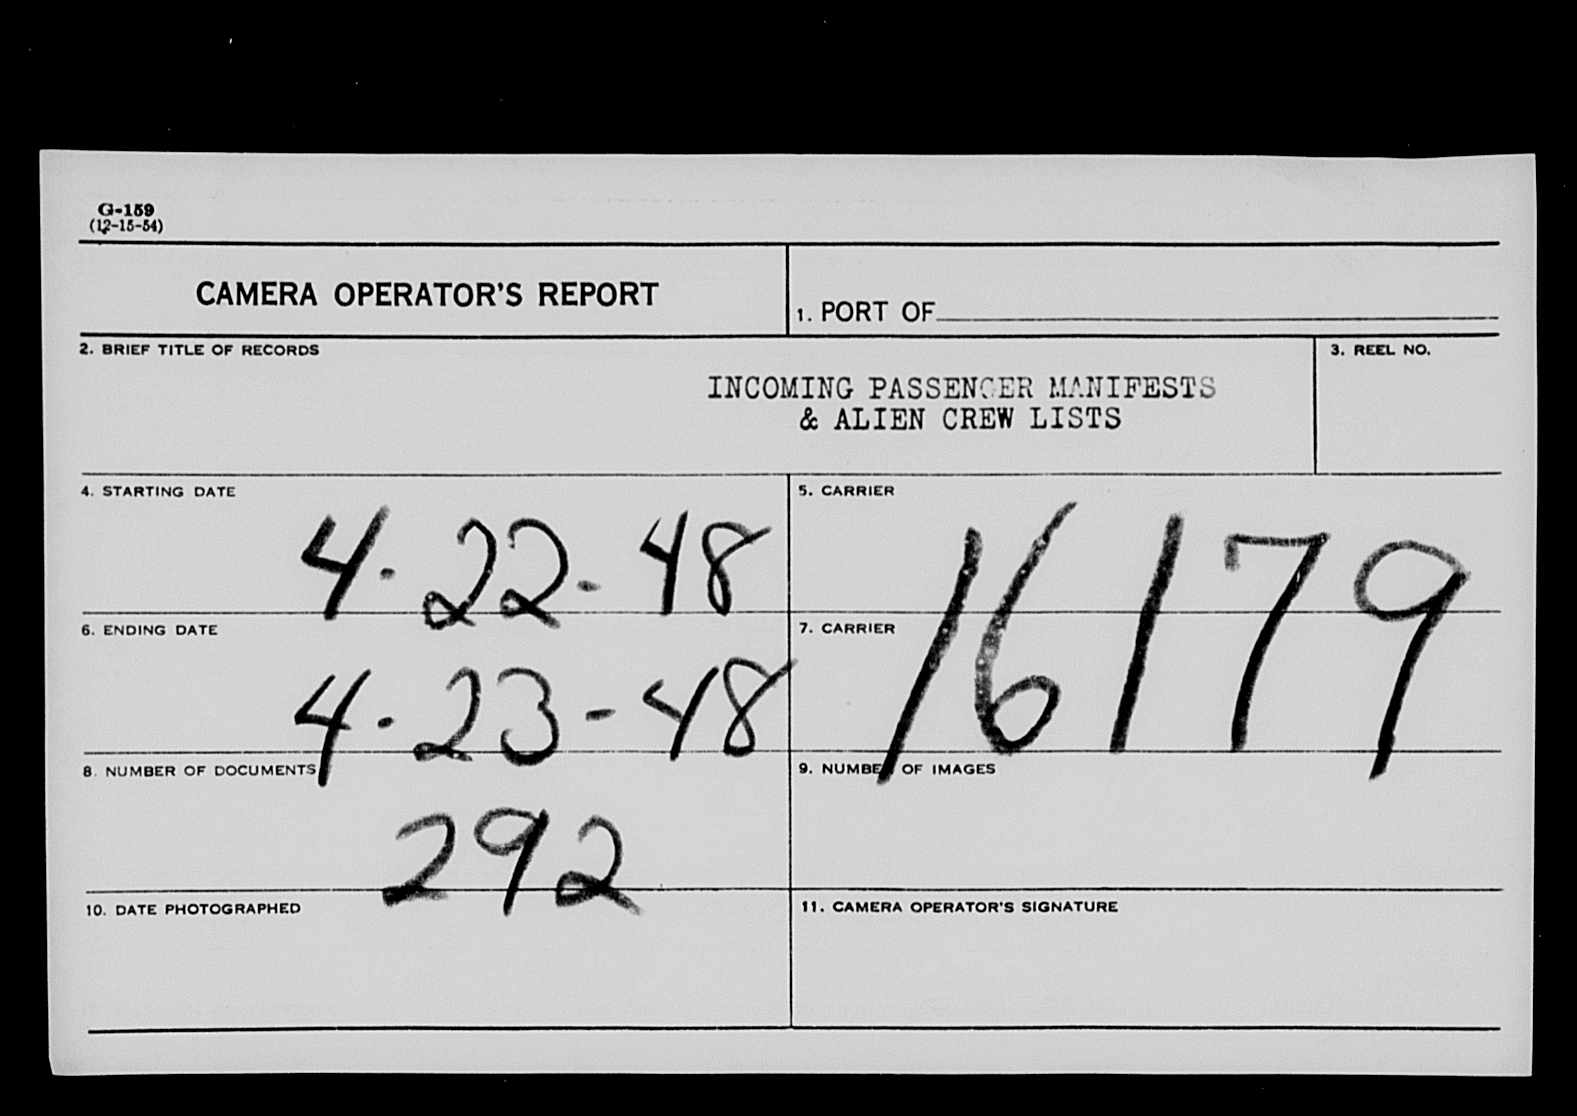 G-159
(12-15-54)
CAMERA OPERATOR'S REPORT
1. PORT OF
2. BRIEF TITLE OF RECORDS
3. REEL NO.
INCOMING PASSENGER MANIFESTS
& ALIEN CREW LISTS
4. STARTING DATE
4-22-48
5. CARRIER
16179
6. ENDING DATE
4-23-48
7. CARRIER
8. NUMBER OF DOCUMENTS
292
9. NUMBER OF IMAGES
10. DATE PHOTOGRAPHED
11. CAMERA OPERATOR'S SIGNATURE